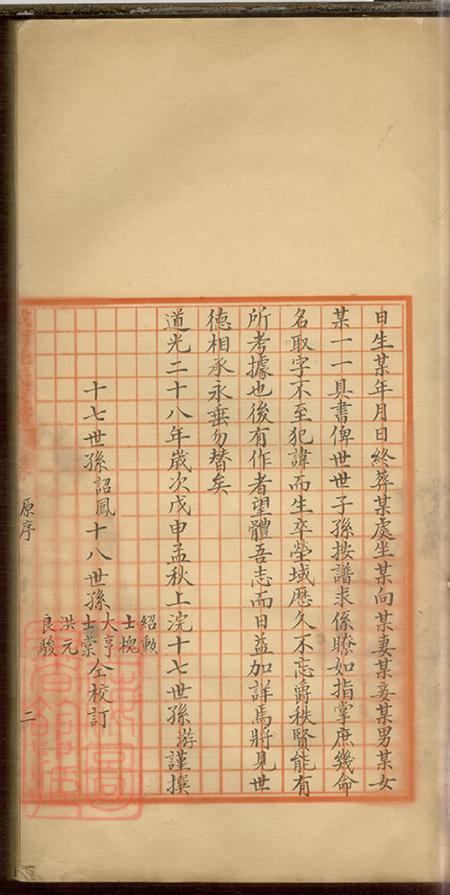 日生某年月日終葬某處坐某向某妻某妾某男某女
某一一具書俾世世子孫按譜求係瞭如指掌庶幾命
名取字不至犯諱而生卒塋域歷久不忘爵秩賢能有
所考據也後有作者望體吾志而日益加詳焉將見世
德相承永垂勿替矣
道光二十八年歲次戊申孟秋上浣十七世孫游謹撰
十七世孫詔鳳十八世孫
紹勳
士槐
大亨
士棠
洪元
良駿
仝校訂
原序
二